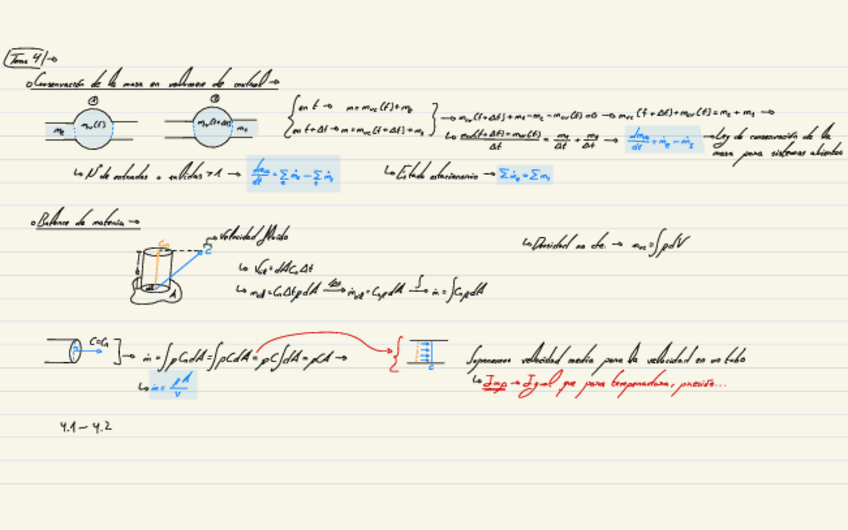 Tema 4 →
○ Conservación de la masa en volumen de control →
① ②
m_e m_vc(t) m_vc(t+Δt) m_s
en t → m = m_vc(t) + m_e
en t+Δt → m = m_vc(t+Δt) + m_s
→ m_vc(t+Δt) + m_s - m_e - m_vc(t) = 0 → m_vc(t+Δt) + m_vc(t) = m_e + m_s →
↳ m_vc(t+Δt) + m_vc(t) / Δt = m_e/Δt + m_s/Δt → dm_vc/dt = ṁ_e - ṁ_s → Ley de conservación de la
masa para sistemas abiertos
↳ Nº de entradas o salidas > 1 → dm_vc/dt = Σ_e ṁ_e - Σ_s ṁ_s
↳ Estado estacionario → Σ ṁ_e = Σ ṁ_s
○ Balance de materia →
C_n C → Velocidad fluido
dA A
↳ V = dA C_n Δt
↳ Densidad no cte. → m_vc = ∫ρdV
↳ m = C_n Δt ρ dA → ṁ = C_n ρ dA → ∫ → ṁ = ∫C_n ρ dA
C = C_n ] → ṁ = ∫ρC_n dA = ∫ρC dA = ρC∫dA = ρCA →
C
Suponemos velocidad media para la velocidad en un tubo
↳ Imp → Igual que para temperatura, presión...
4.1 - 4.2